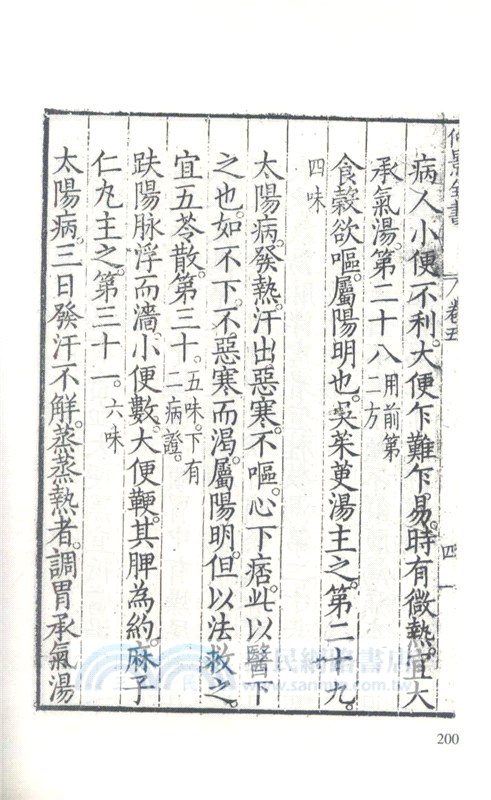 仲景全書 卷五 四
病人小便不利。大便乍難乍易。時有微熱。宜大
承氣湯。第二十八。用前第二方
食穀欲嘔。屬陽明也。吳茱萸湯主之。第二十九。
四味
太陽病。發熱。汗出惡寒。不嘔。心下痞。此以醫下
之也。如不下。不惡寒而渴。屬陽明。但以法救之。
宜五苓散。第三十。五味。下有二病證。
趺陽脉浮而濇。小便數。大便鞕。其脾為約。麻子
仁丸主之。第三十一。六味
太陽病。三日發汗不解。蒸蒸熱者。調胃承氣湯
200
三民網路書店
www.sanmin.com.tw